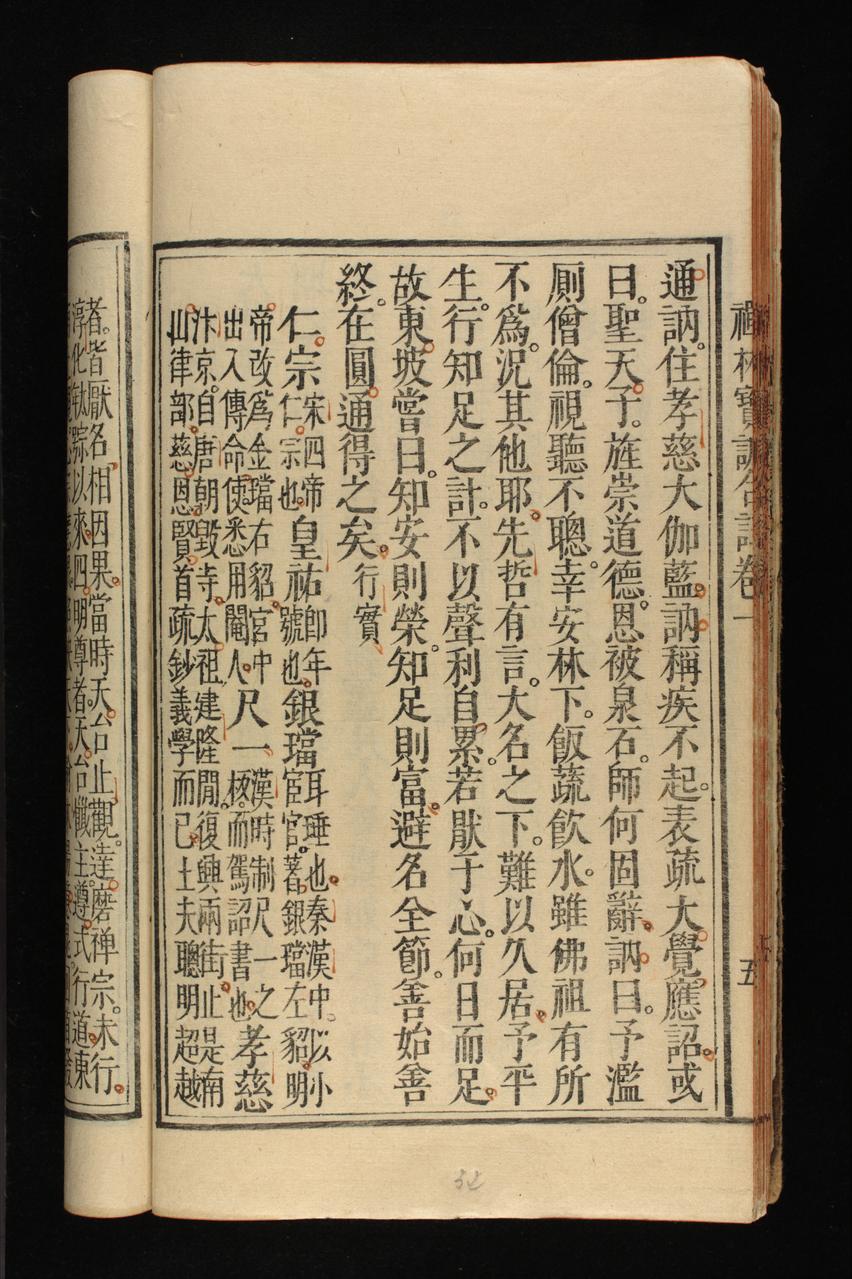 禪林寶訓合註卷一
五
通訥。住孝慈大伽藍。訥稱疾不起。表疏大覺應詔。或
曰。聖天子。旌崇道德。恩被泉石。師何固辭。訥曰。予濫
厠僧倫。視聽不聰。幸安林下。飯蔬飲水。雖佛祖有所
不爲。況其他耶。先哲有言。大名之下。難以久居。予平
生。行知足之計。不以聲利自累。若厭于心。何日而足。
故東坡嘗曰。知安則榮。知足則富。避名全節。善始善
終。在圓通得之矣。行實
仁宗宋四帝仁宗也。皇祐卽年號也。銀璫耳埵也。秦漢中以小宦官。著銀璫左貂。明
帝改爲金璫右貂。宮中出入傳命使悉用閹人。尺一漢時制尺一之板。而駕詔書也。孝慈
汴京。自唐朝毀寺。太祖建隆閒。復興兩街。止是南
山律部。慈恩賢首疏鈔義學而已。士夫聰明超越
者。皆厭名相因果。當時天台止觀。達磨禪宗。未行。
四明尊者。天台懺主。遵式行道東